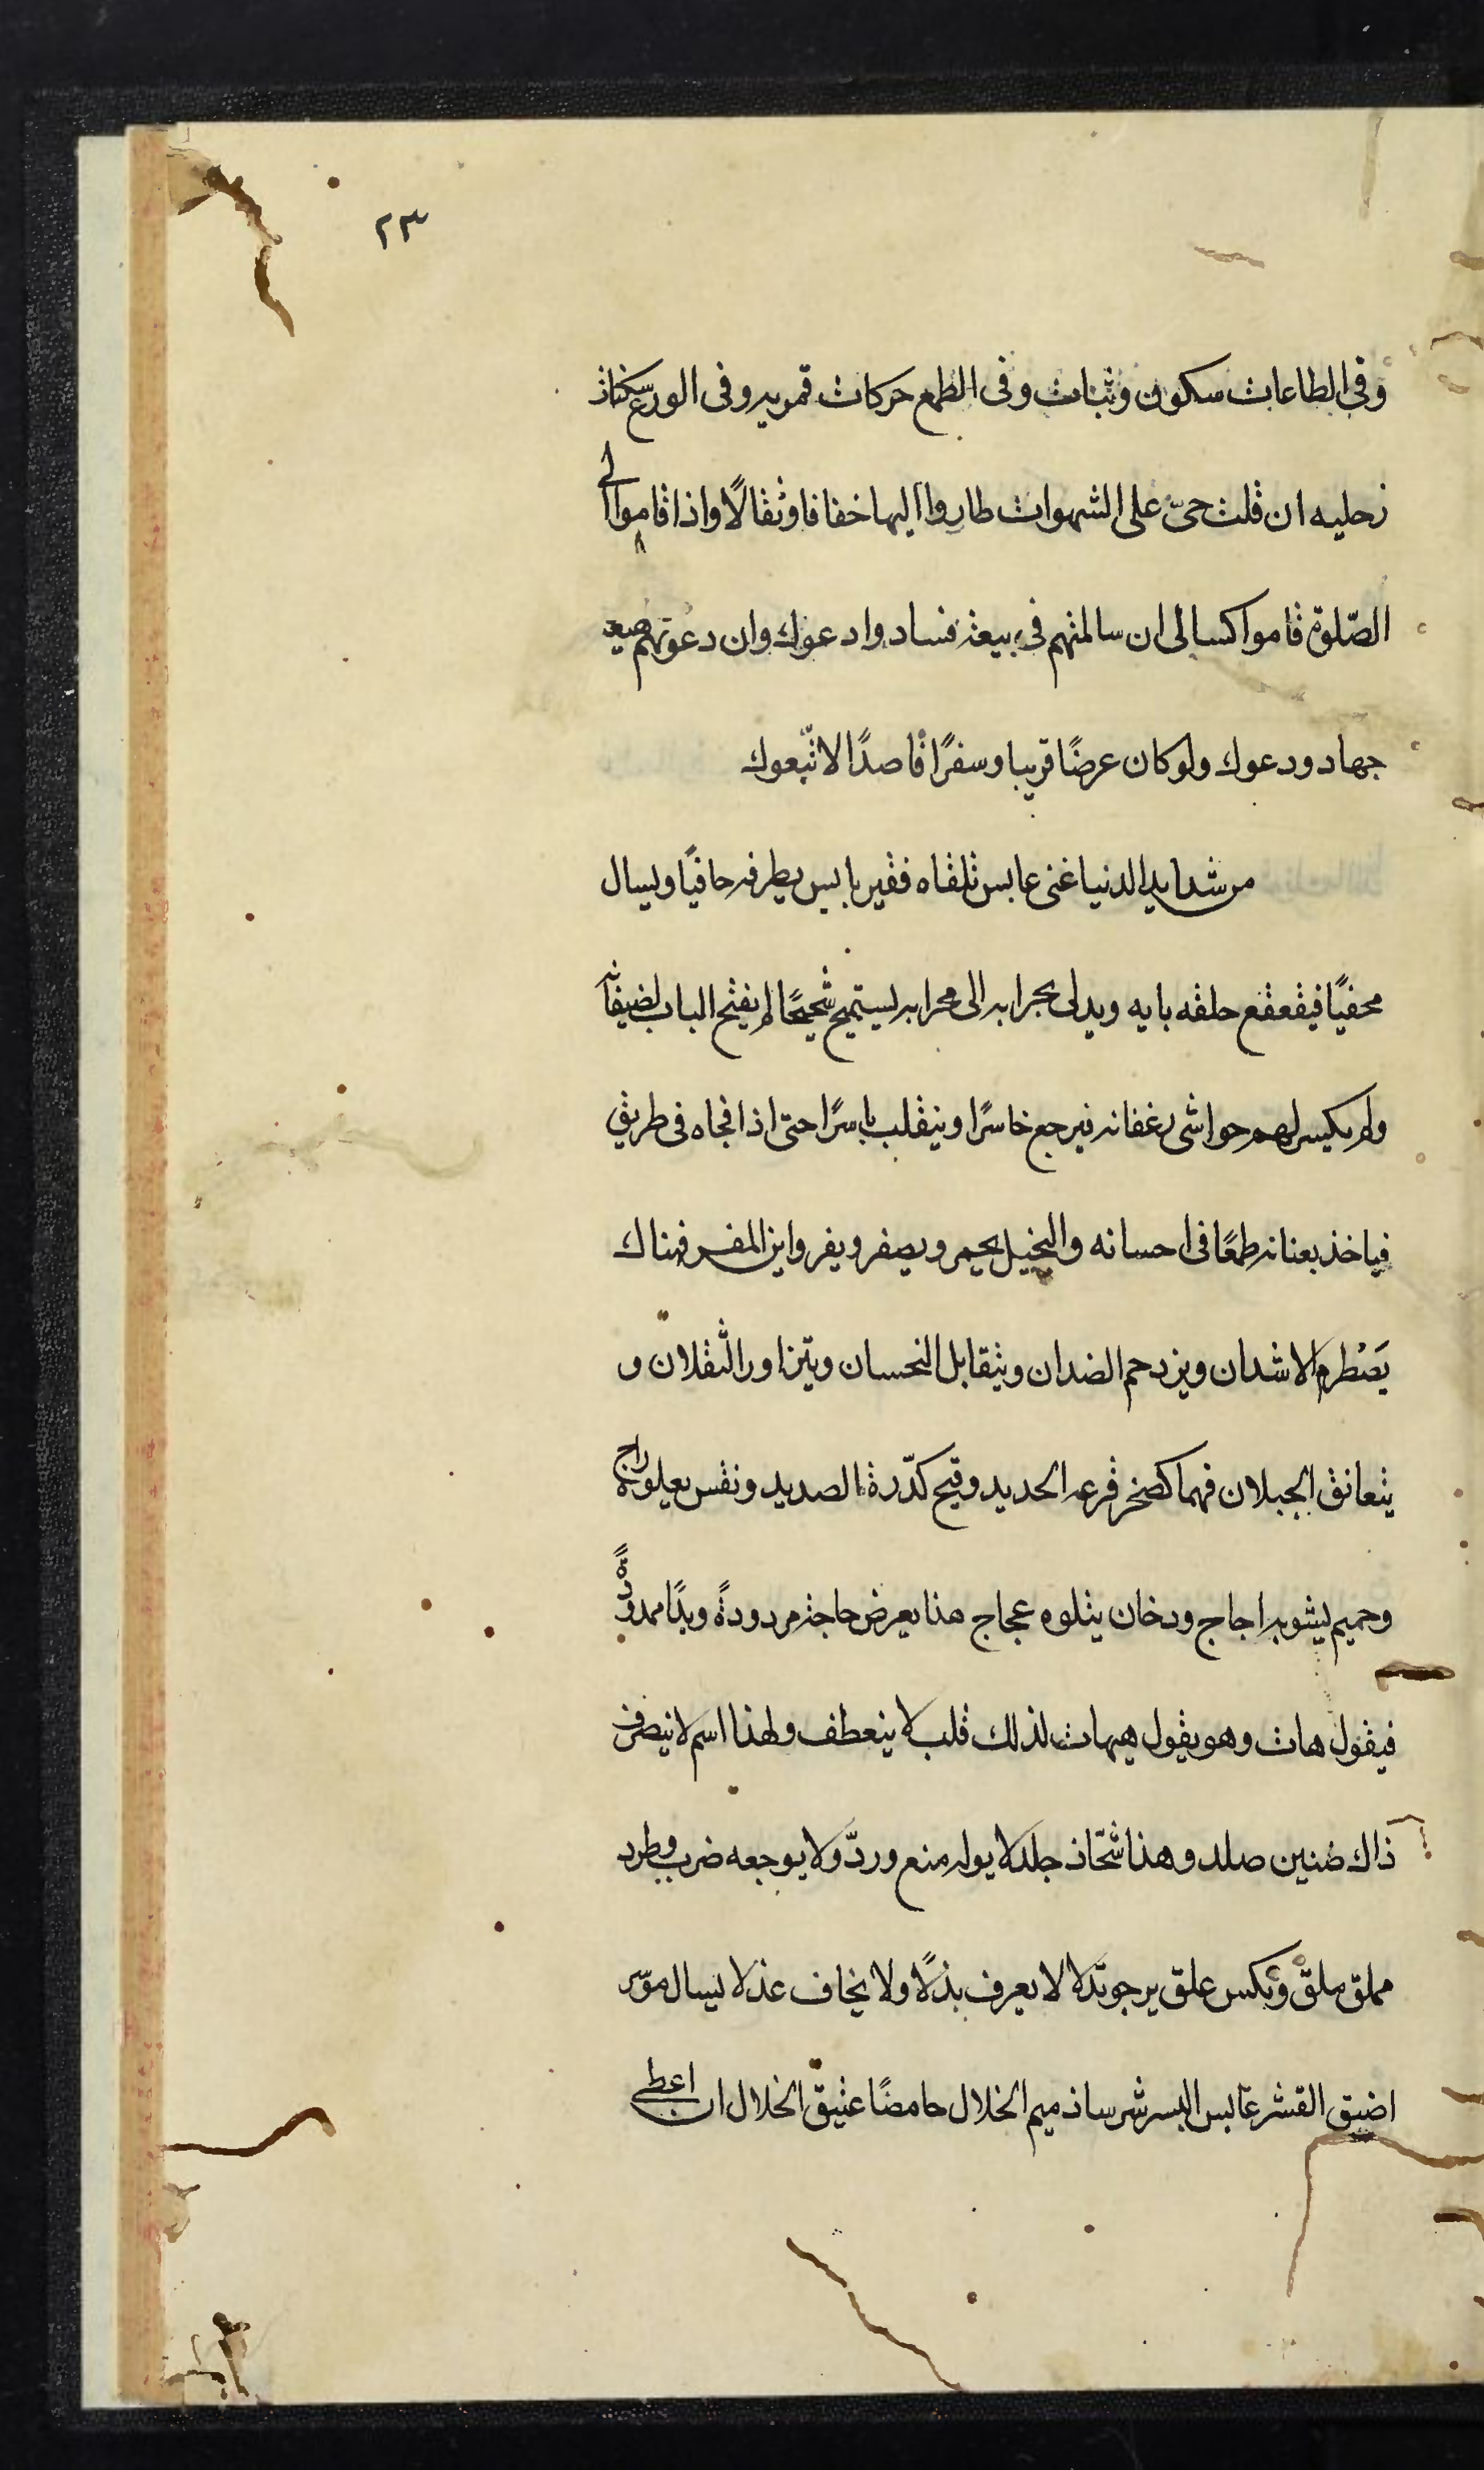 ٢٣
وفى الطاعات سكون وثبات وفى الطمع حركات قمريه وفى الورع سكنات
زحليه ان قلت حىّ على الشهوات طاروا اليها خفافا وثقالًا واذا قاموا الى
الصّلوة قاموا كسالى ان سالمتهم فى بيعة فساد وادعوك وان دعوتهم
جهاد ودعوك ولو كان عرضًا قريبا وسفرًا قاصدًا لاتّبعوك
من شدايد الدنيا غنى عابس تلقاه فقير بايس يطرقه حافيًا ويسال
محفيًا فيقعقع حلقه بابه ويدلى بجرابه الى محرابه ليستميح شحيحًا لم يفتح الباب لضيفانه
ولم يكسر لهم حواشى رغفانه فيرجع خاسرًا وينقلب باسرًا حتى اذا فجاه فى طريق
فياخذ بعنانه طمعًا فى احسانه والبخيل يحمر ويصفر ويفر واين المفر فهناك
يَصْطرم الاشدان ويزدحم الضدان ويتقابل النحسان ويتزاور الثقلان و
يتعانق الجبلان فهما كصخر قرعه الحديد وقيح كدّرة الصديد ونفس يعلوه
وحميم يشوبه اجاج ودخان يتلوه عجاج هذا يعرض حاجة مردودةً ويدًا ممدودةً
فيقول هات وهو يقول هيهات لذلك قلب لا ينعطف ولهذا اسم لا ينصرف
ذاك ضنين صلد وهذا شحّاذ جلد لا يوله منع وردّ ولا يوجعه ضرب وطرد
مملق ملقّ علق يرجو لا يعرف بذلًا ولا يخاف عذلا يسال
اضيق القشر عابس البسر شرسا ذميم الخلال حامضًا عتيق الخلال ان اعطى